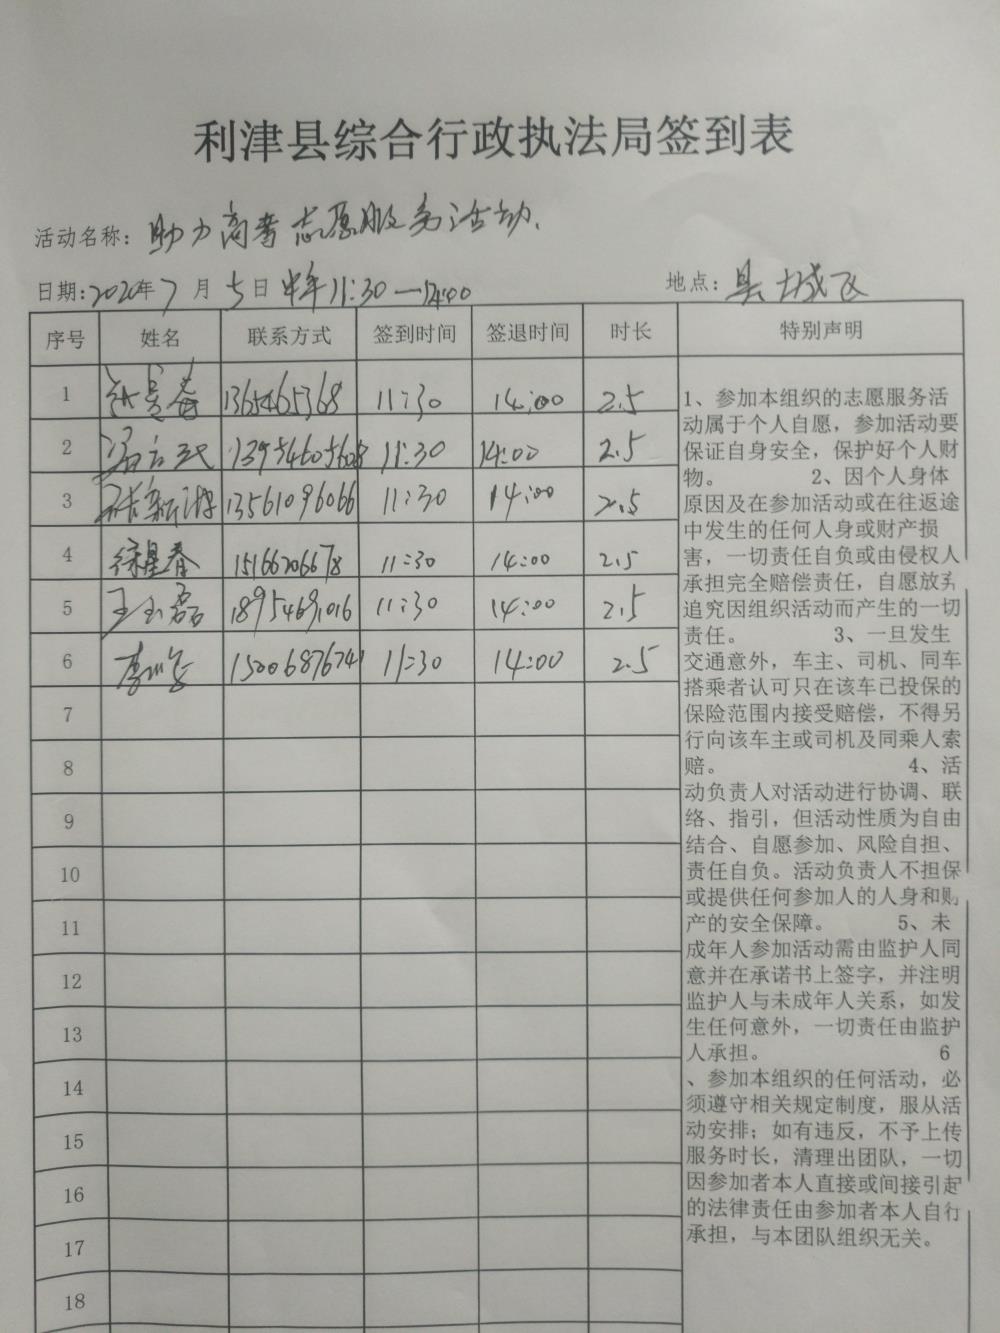 利津县综合行政执法局签到表
活动名称：助力高考志愿服务活动.
日期:2020年7月5日 中午11:30—14:00 地点：县城区
序号 姓名 联系方式 签到时间 签退时间 时长 特别声明
1 11:30 14:00 2.5
2 11:30 14:00 2.5
3 13561096066 11:30 14:00 2.5
4 徐星春 15166206678 11:30 14:00 2.5
5 王玉磊 18954691016 11:30 14:00 2.5
6 15006876741 11:30 14:00 2.5
7
8
9
10
11
12
13
14
15
16
17
18
1、参加本组织的志愿服务活
动属于个人自愿，参加活动要
保证自身安全，保护好个人财
物。 2、因个人身体
原因及在参加活动或在往返途
中发生的任何人身或财产损
害，一切责任自负或由侵权人
承担完全赔偿责任，自愿放弃
追究因组织活动而产生的一切
责任。 3、一旦发生
交通意外，车主、司机、同车
搭乘者认可只在该车已投保的
保险范围内接受赔偿，不得另
行向该车主或司机及同乘人索
赔。 4、活
动负责人对活动进行协调、联
络、指引，但活动性质为自由
结合、自愿参加、风险自担、
责任自负。活动负责人不担保
或提供任何参加人的人身和财
产的安全保障。 5、未
成年人参加活动需由监护人同
意并在承诺书上签字，并注明
监护人与未成年人关系，如发
生任何意外，一切责任由监护
人承担。 6
、参加本组织的任何活动，必
须遵守相关规定制度，服从活
动安排；如有违反，不予上传
服务时长，清理出团队，一切
因参加者本人直接或间接引起
的法律责任由参加者本人自行
承担，与本团队组织无关。